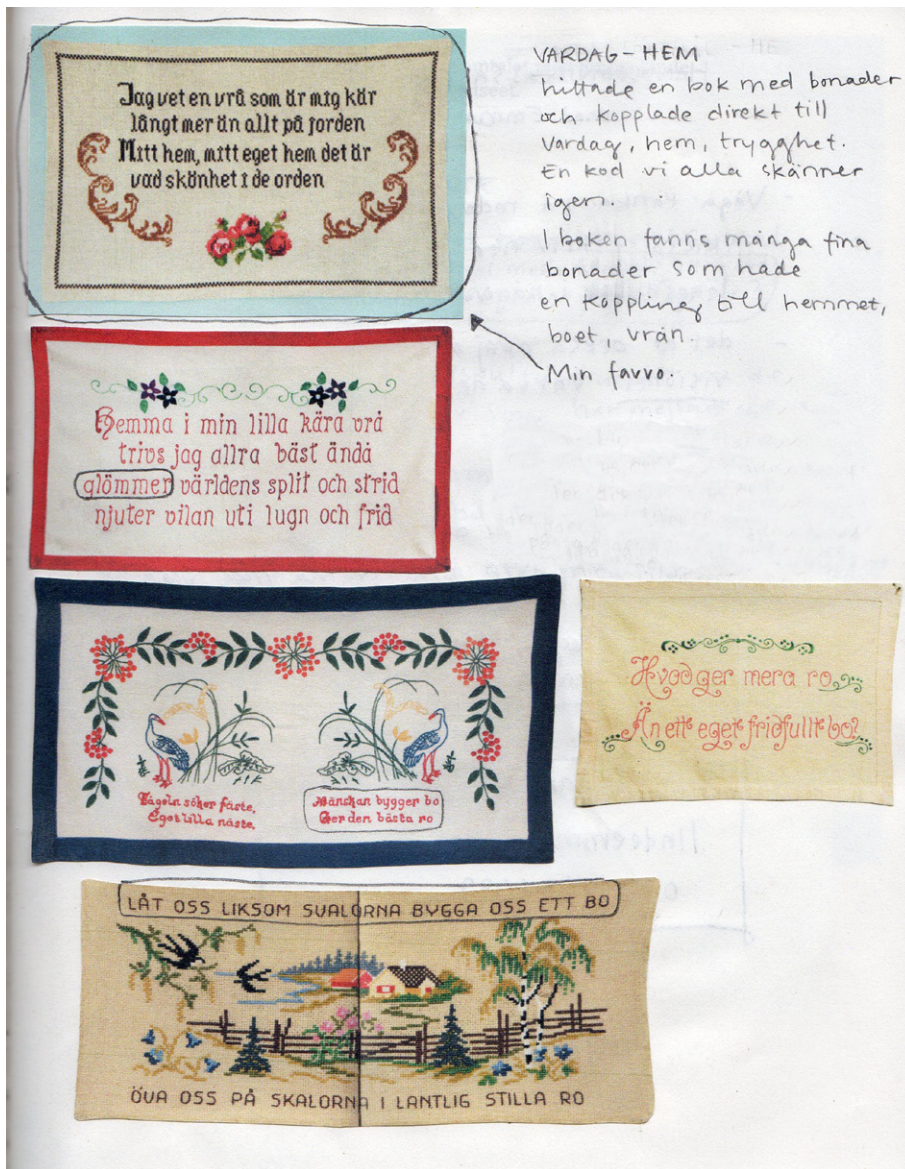 Jag vet en vrå som är mig kär
långt mer än allt på jorden
Mitt hem, mitt eget hem det är
vad skönhet i de orden
VARDAG - HEM
hittade en bok med bonader
och kopplade direkt till
vardag, hem, trygghet.
En kod vi alla skänner
igen.
I boken fanns många fina
bonader som hade
en koppling till hemmet,
boet, vrån
Min favvo.
Hemma i min lilla kära vrå
trivs jag allra bäst ändå
glömmer världens split och strid
njuter vilan uti lugn och frid
Fågeln söker fäste,
Eget lilla näste.
Mänskan bygger bo
Ger den bästa ro
Hvad ger mera ro
Än ett eget fridfullt bo?
LÅT OSS LIKSOM SVALORNA BYGGA OSS ETT BO
ÖVA OSS PÅ SKALORNA I LANTLIG STILLA RO